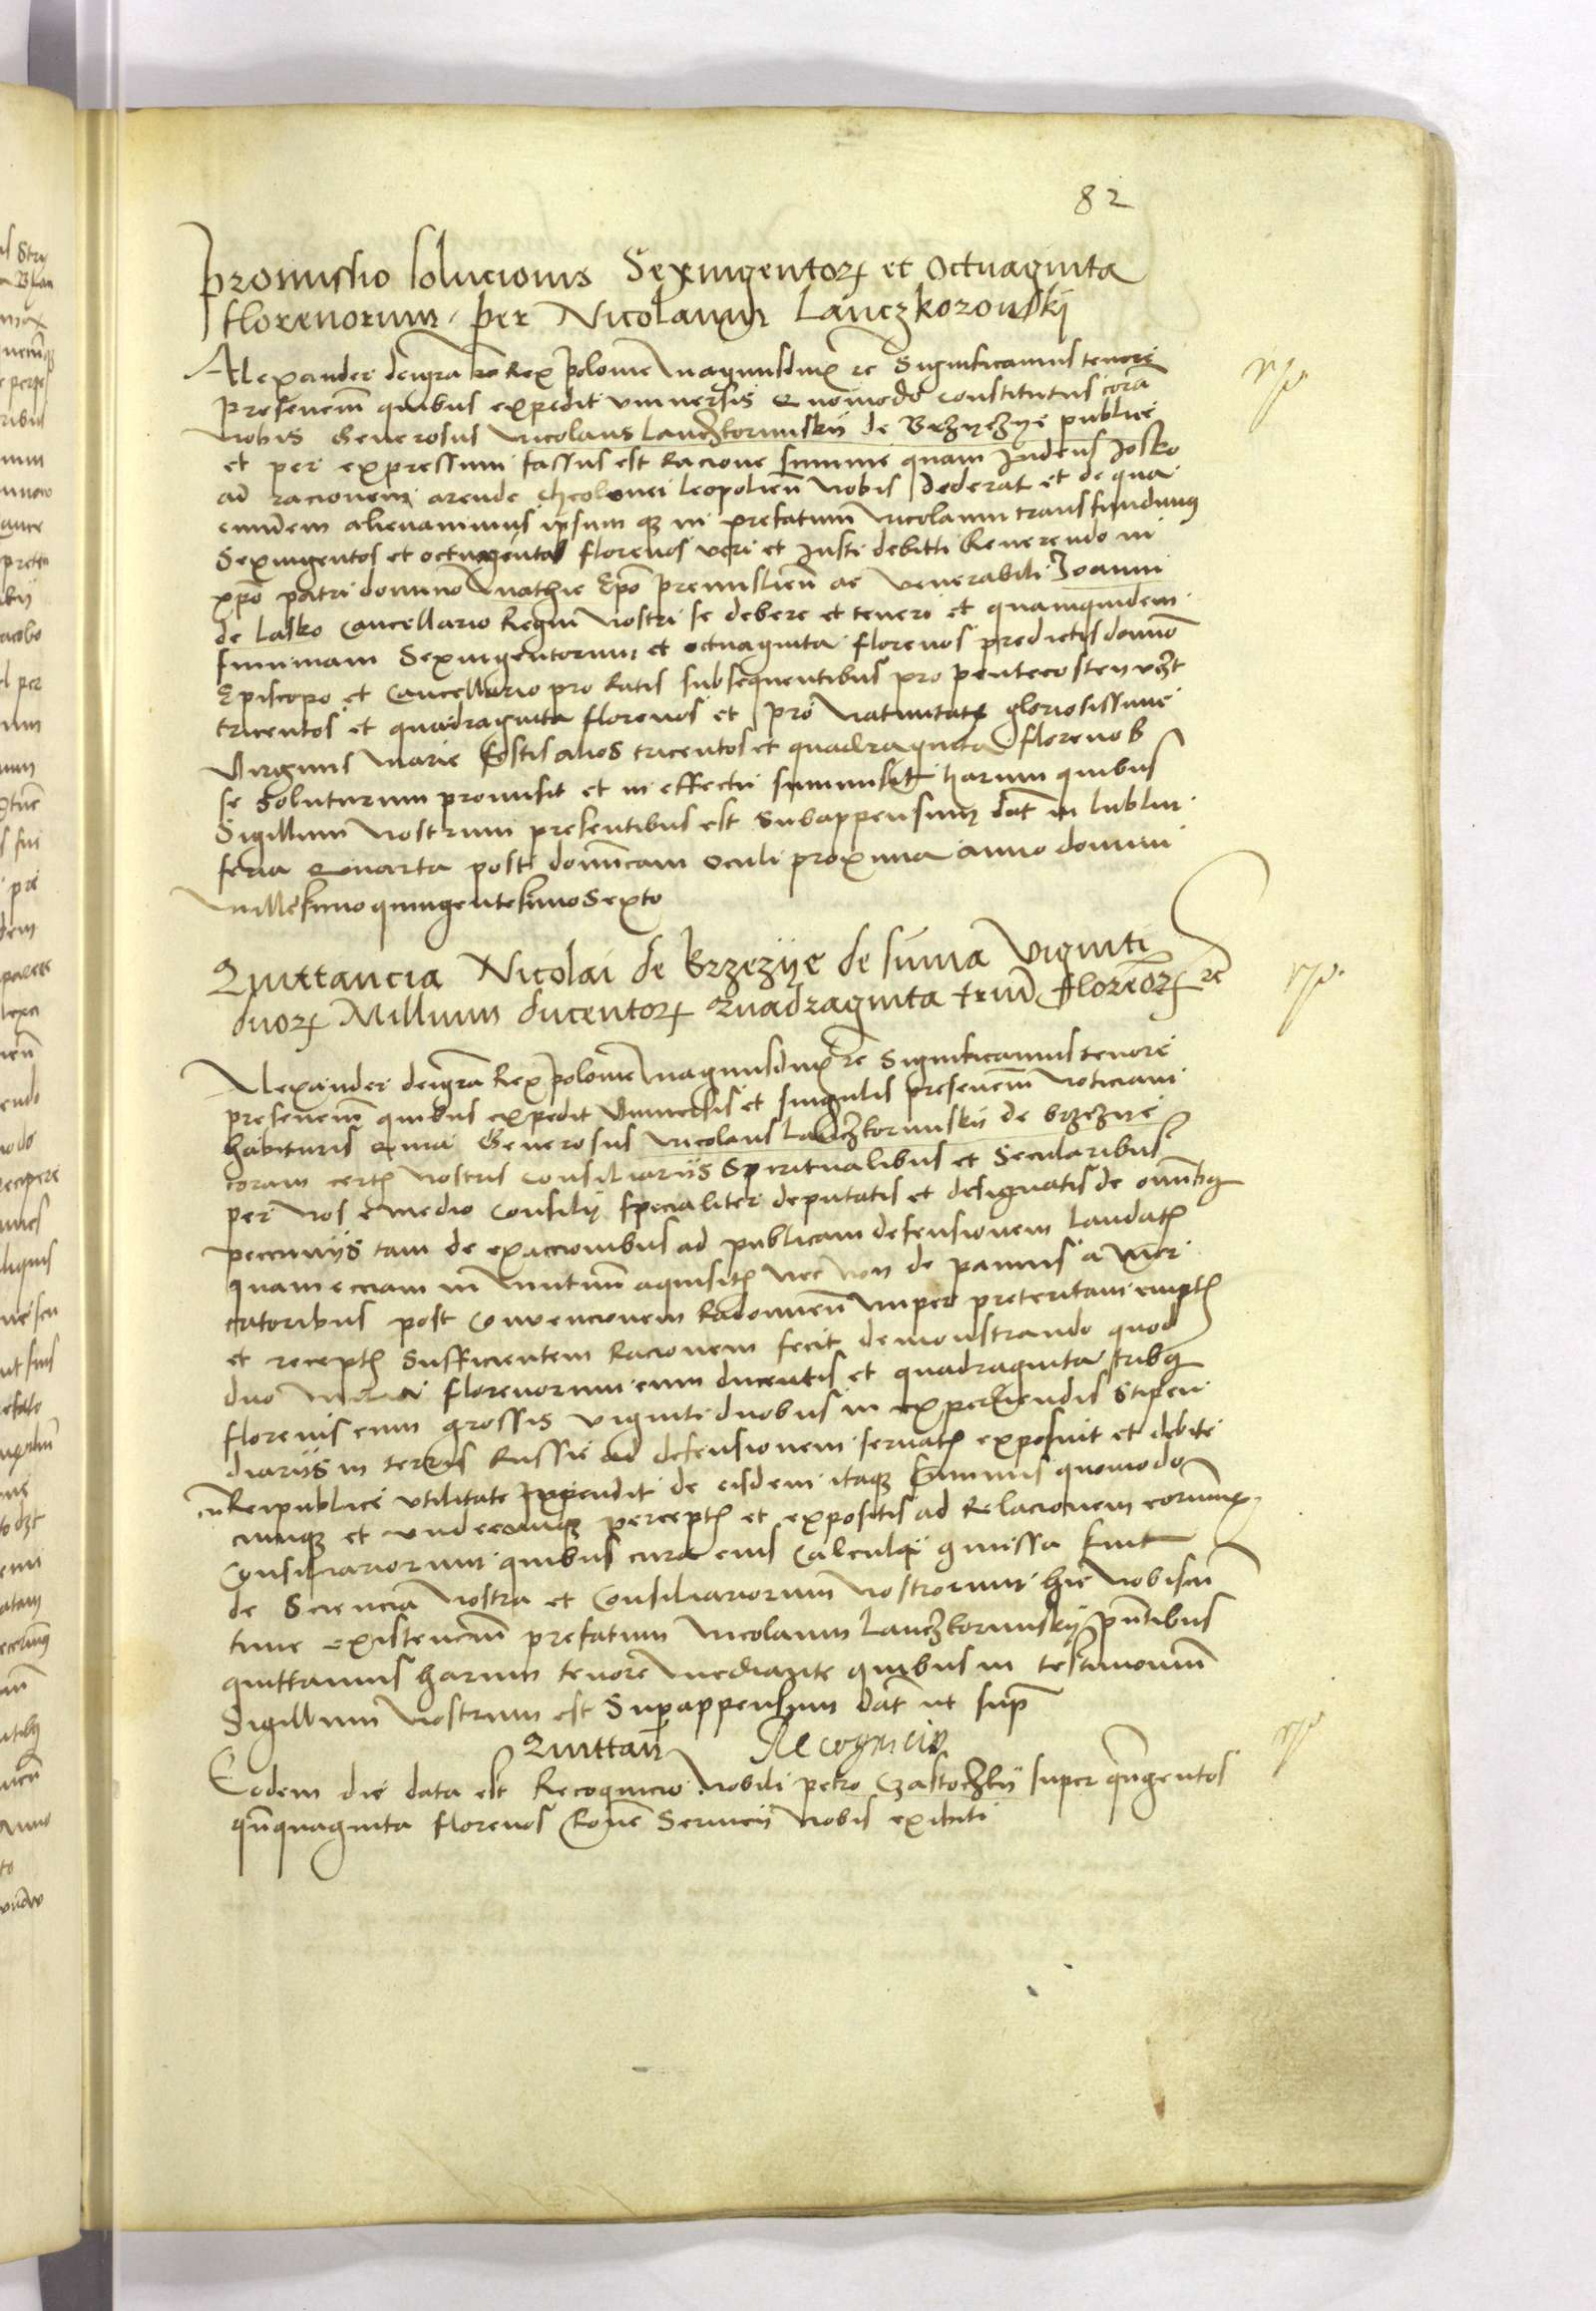 82
Promissio solucionis Sexingentorꝝ et octuaginta
florenorum per Nicolaum Lanczkoronskij
Alexander dei gra̅ Rex Polonie magnusdux ꝛc Significamus tenore
presencium̅ quibus expedit vniuersis Quomodo constitutus cora̅
nobis Generosus Nicolaus Lanczkorunskij de Brzyezye publice
et per expressum fassus est Racione summe quam Iudeus Josko
ad racionem arende theolonei leopolien̅ nobis dederat et de qua
eundem alienauimus ipsum qꝫ in prefatum Nicolaum transfundimus
Sexingentos et octuaginta florenos veri et Iusti debitti Reuerendo in
xp̅o patri domino Mathie Ep̅o premislien̅ ac venerabili Joanni
de Lasko Cancellario Regni nostri se debere et teneri et quamquidem
summam Sexingentorum et octuaginta florenos predictis domino̅
Episcopo et Cancellario pro Ratis subsequentibus pro pentecosten vꝫt
tricentos et quadraginta florenos et pro natiuitate gloriosissime
virginis marie festis alios tricentos et quadraginta florenos
se soluturum promisit et in effectu summisit harum quibus
Sigillum nostrum presentibus est Subappensum dat̅ in lublin
feria Quarta post dom̅icam Oculi proxima anno domini
millesimo quingentesimo Sexto
Quittancia Nicolai de Brzezye de su̅ma viginti
duorꝝ Millium ducentorꝝ Quadraginta trium̅ florenorꝝ ꝛc
Alexander dei gra̅ Rex Polonie magnusdux ꝛc Significamus tenore
presencium̅ quibus expedit vniuersis et singulis presencium̅ noticiam
habituris Quia Generosus Nicolaus Lanczkorunskij de brzezye
coram certꝭ nostris Consiliariis Spiritualibus et Secularibus
per nos e medio Consilij specialiter deputatis et designatis de om̅ibꝫ
pecunijs tam de exaccionibus ad publicam defensionem laudatꝭ
quam eciam in mutuum aquisitꝭ nec non de pannis a mer
catoribus post Conuencionem Radomien̅ nuper preteritam emptꝭ
et receptꝭ Sufficientem Racionem fecit demonstrando quod
duo florenorum cum ducentis et quadraginta tribꝫ
florenis cum grossis viginti duobus in expediendis Stipen
diariis in terris Russie ad defensionem seruatꝭ exposuit et debite
in Reipublice vtilitate Inpendit de eisdem itaqꝫ Summis quomodo
cunqꝫ et vndecunqꝫ perceptꝭ et expositis ad Relacionem eorum
Consiliariorum quibus cura eius Calculi ꝯmissa fuit
de Sciencia nostra et Consiliariorum nostrorum hic nobiscu̅
tunc existencium̅ prefatum Nicolaum Lanczkorunskij pn̅tibus
quittamus harum tenore mediante quibus in testimonium̅
Sigillum nostrum est Subappensum dat̅ ut sup̅
Quittan̅ Recognicio
Eodem die data est Recognicio Nobili petro super qn̅gentos
qn̅quaginta florenos Ro̅ne Seruicij nobis exibiti